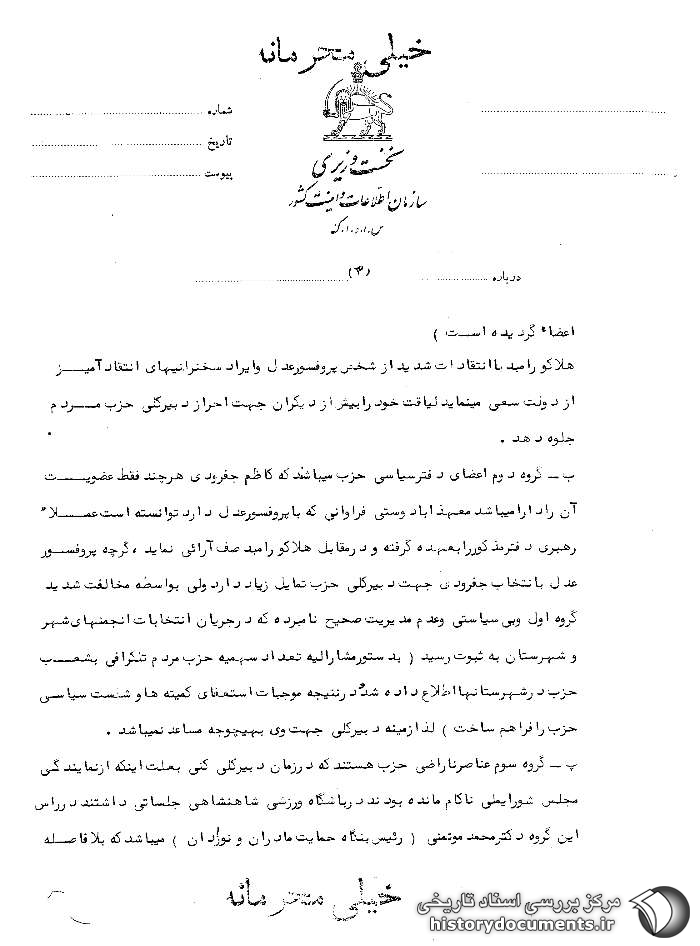 خیلی محرمانه
شماره
تاریخ
پیوست
نخست وزیری
سازمان اطلاعات و امنیت کشور
س.ا.و.ا.ک
درباره (۳)
اعضاء گردیده است )
هلاکو رامبد با انتقادات شدید از شخص پروفسور عدل و ایراد سخنرانیهای انتقاد آمیز
از دولت سعی مینماید لیاقت خود را بیش از دیگران جهت احراز دبیرکلی حزب مردم
جلوه دهد .
ب ـ گروه دوم اعضای دفتر سیاسی حزب میباشند که کاظم جفرودی هرچند فقط عضویت
آن را دارا میباشد معهذا با دوستی فراوانی که با پروفسور عدل دارد توانسته است عملاً
رهبری دفتر مذکور را بعهده گرفته و در مقابل هلاکو رامبد صف آرائی نماید ، گرچه پروفسور
عدل با انتخاب جفرودی جهت دبیرکلی حزب تمایل زیاد دارد ولی بواسطه مخالفت شدید
گروه اول و بی سیاستی و عدم مدیریت صحیح نامبرده که در جریان انتخابات انجمنهای شهر
و شهرستان به ثبوت رسید ( بدستور مشارالیه تعداد سهمیه حزب مردم تلگرافی بشعب
حزب در شهرستانها اطلاع داده شد و در نتیجه موجبات استعفای کمیته ها و شکست سیاسی
حزب را فراهم ساخت ) لذا زمینه دبیرکلی جهت وی بهیچوجه مساعد نمیباشد .
پ ـ گروه سوم عناصر ناراضی حزب هستند که در زمان دبیرکلی کنی بعلت اینکه از نمایندگی
مجلس شورایملی ناکام مانده بودند در باشگاه ورزشی شاهنشاهی جلساتی داشتند در راس
این گروه دکتر محمد موتمنی ( رئیس بنگاه حمایت مادران و نوزادان ) میباشد که بلافاصله
خیلی محرمانه
مرکز بررسی اسناد تاریخی
historydocuments.ir